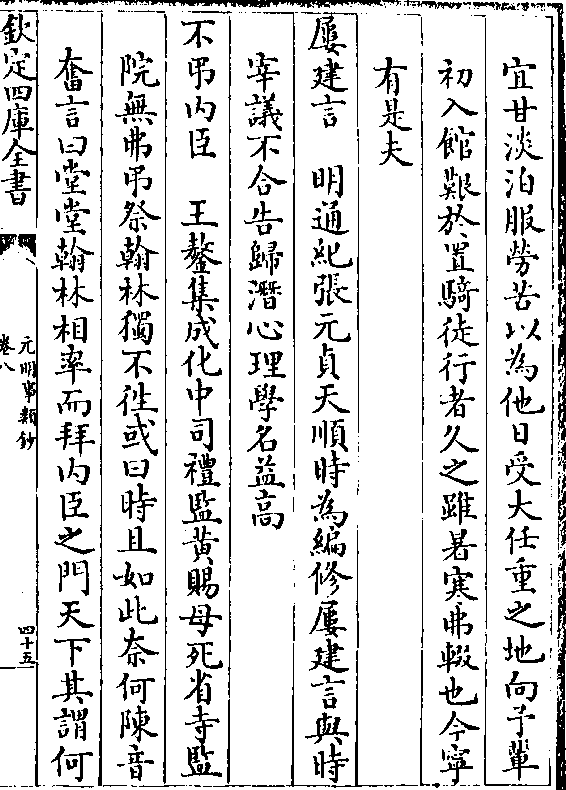 宜甘淡泊服勞苦以為他日受大任重之地向予輩
初入館艱於置騎徒行者久之雖暑寒弗輟也今寧
有是夫
屢建言　明通紀張元貞天順時為編修屢建言與時
宰議不合告歸潛心理學名益高
不弔内臣　王鏊集成化中司禮監黄賜母死省寺監
院無弗弔祭翰林獨不徃或曰時且如此奈何陳音
奮言曰堂堂翰林相率而拜内臣之門天下其謂何
欽定四庫全書
元明事類鈔
卷八
四十五